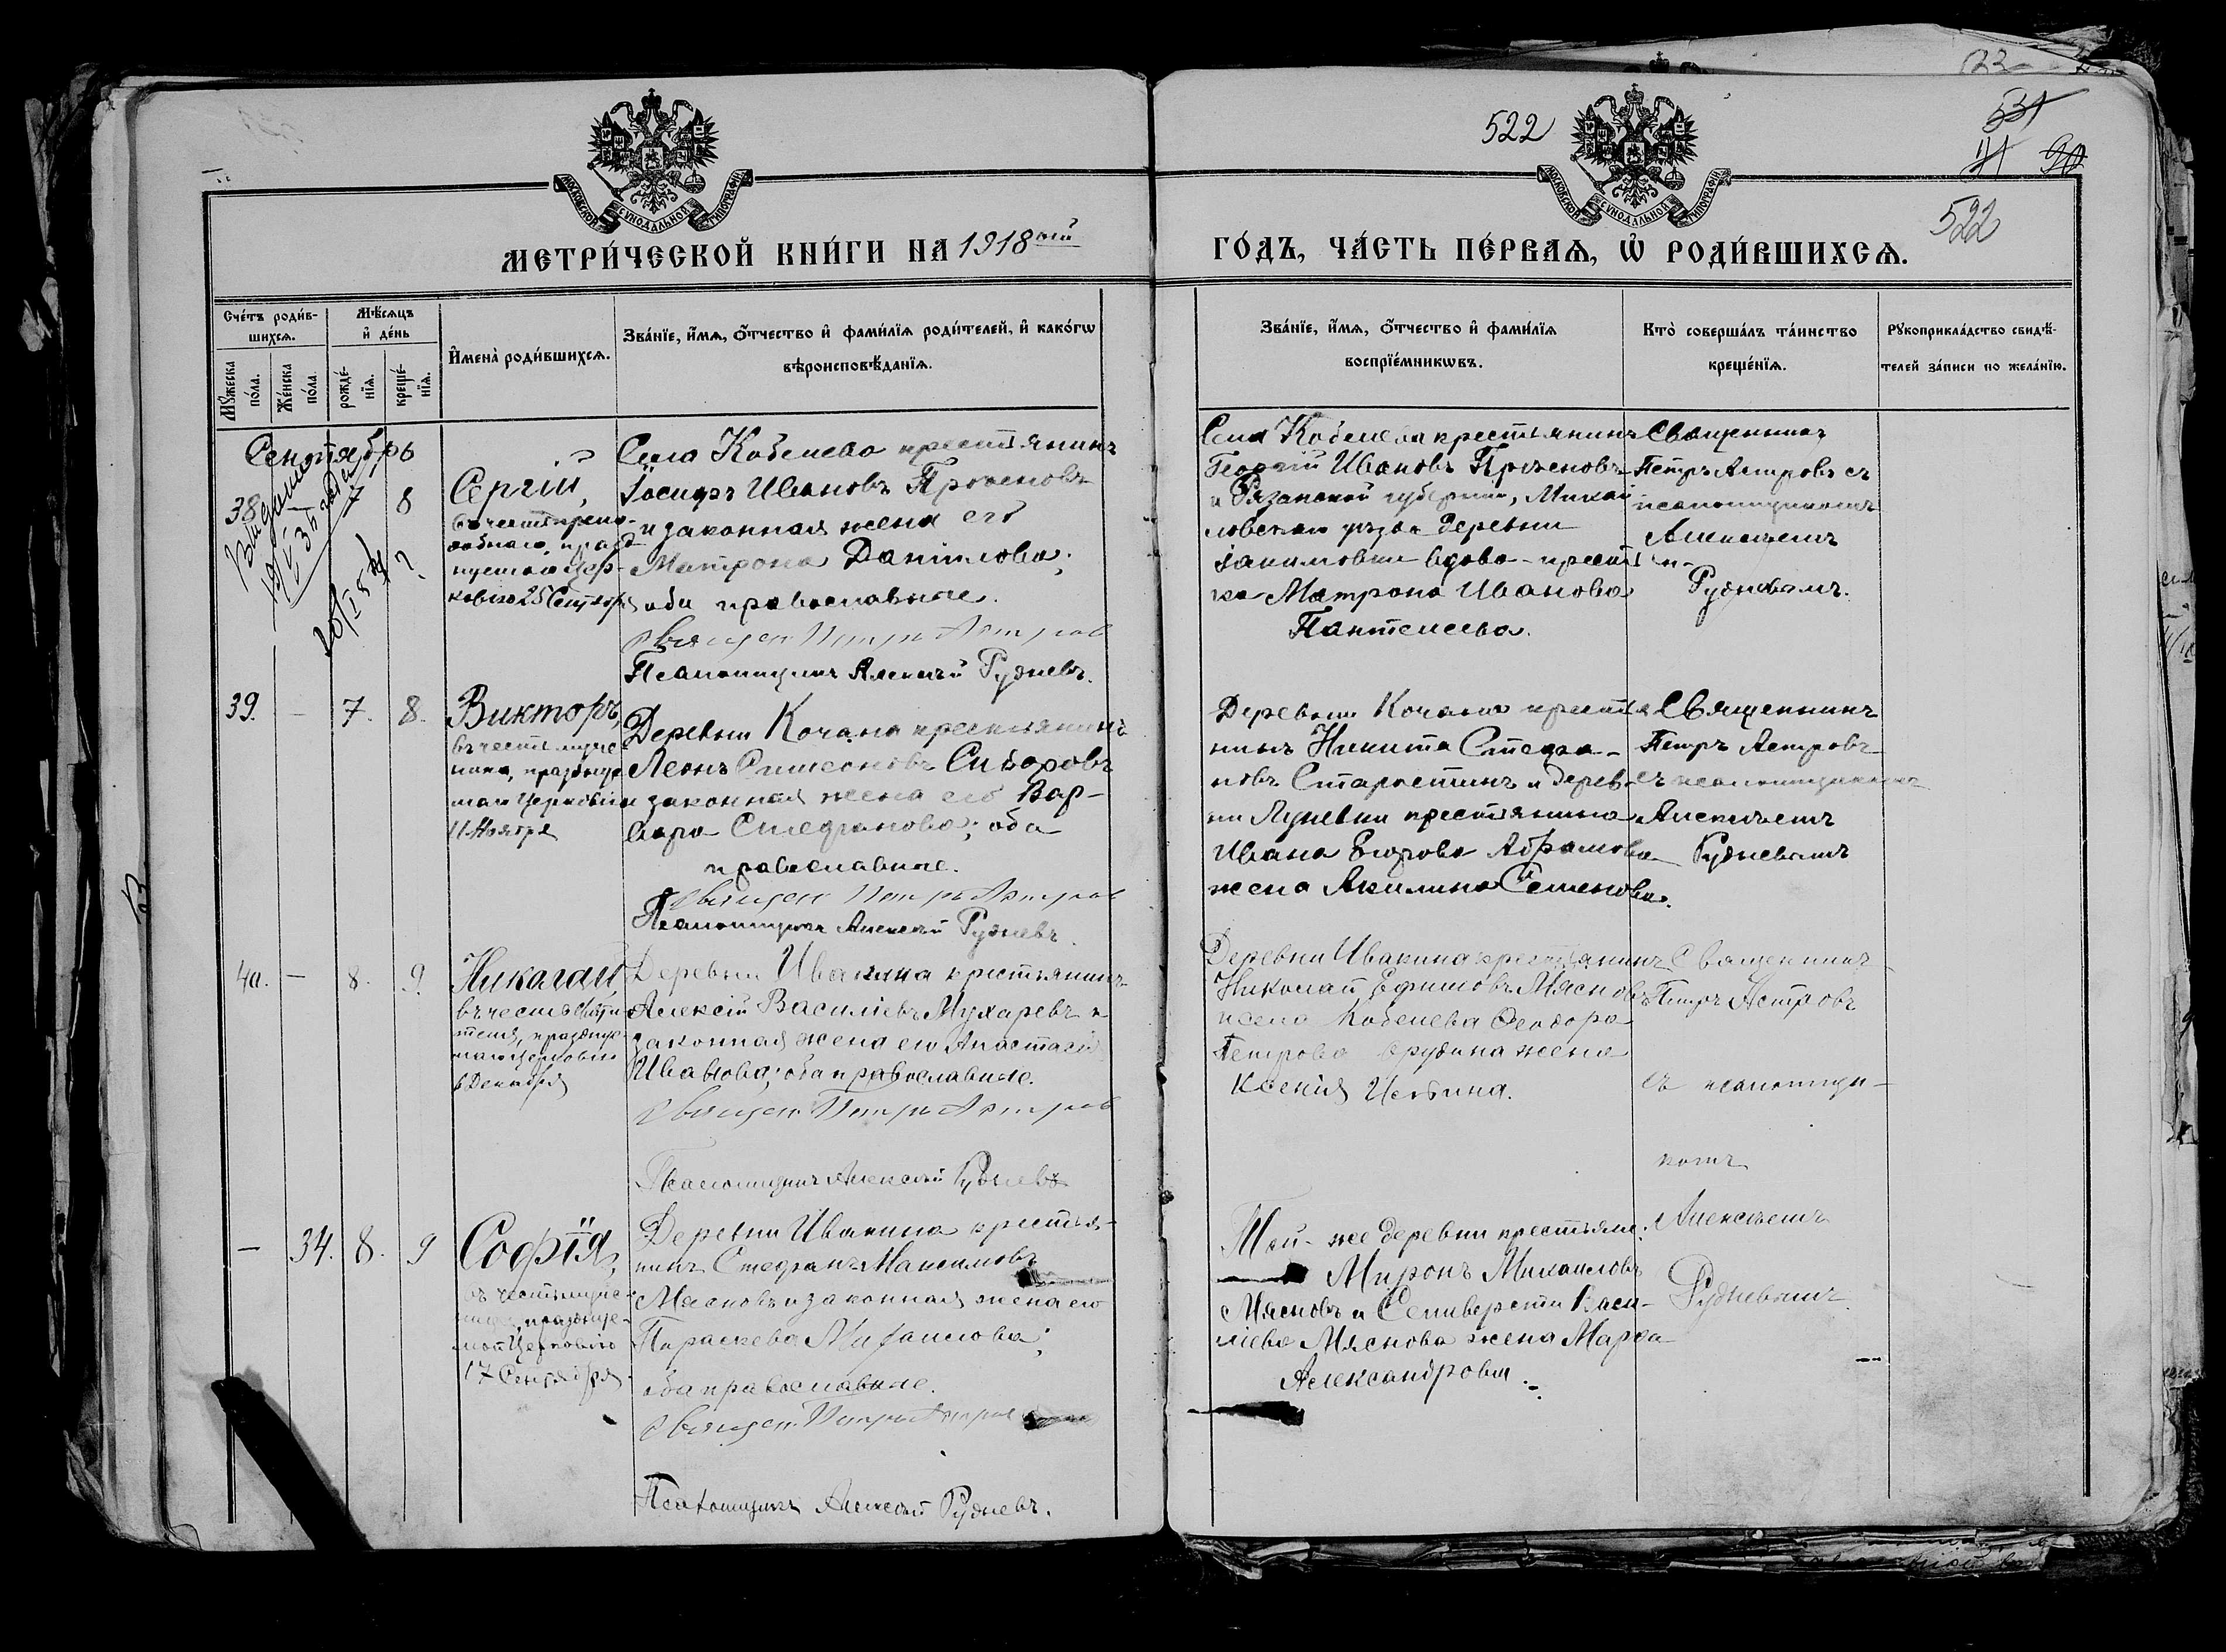 522
531
11 90
522
МОСКОВСКОЙ СѴНОДАЛЬНОЙ ТИПОГРАФІИ
МОСКОВСКОЙ СѴНОДАЛЬНОЙ ТИПОГРАФІИ
МЕТРИ́ЧЕСКОЙ КНИ́ГИ НА 1918ый
ГО́ДЪ, ЧА́СТЬ ПЕ́РВАѦ, Ѡ҆ РОДИ́ВШИХСѦ.
Сче́тъ роди́в-
шихсѧ.
Мꙋ́жеска по́ла.
Же́нска по́ла.
Мѣ́сѧцъ
и҆ де́нь
рожде́-
нїѧ.
креще́-
нїѧ.
И҆мена̀ роди́вшихсѧ.
Зва́нїе, и҆́мѧ, ѻ҆́тчество и҆ фами́лїѧ роди́телей, и҆ како́гѡ
вѣроисповѣ́данїѧ.
Зва́нїе, и҆́мѧ, ѻ҆́тчество и҆ фами́лїѧ
воспрїе́мникѡвъ.
Кто̀ соверша́лъ та́инство
креще́нїѧ.
Рꙋкоприкла́дство свидѣ́-
телей за́писи по жела́нїю.
Сентябрь
38
7
8
Сергій,
въ честь препо-
добнаго, празд-
нуемаго Цер-
ковію 25 Сентября
Села Кобелева крестьянинъ
Іосифъ Ивановъ
и законная жена его
Матрона Даніилова;
оба православные.
Священ. Петръ Астров
Псаломщикъ Алексѣй Рудневъ.
Села Кобелева крестьянинъ
Георгій Ивановъ
и Рязанской губерніи, Михай
ловскаго уѣзда деревни
вдова-крестьян-
ка Матрона Иванова
Пантелеева.
Священникъ
Петръ Астровъ съ
псаломщикомъ
Алексѣемъ
Рудневымъ.
39.
—
7.
8.
Викторъ,
въ честь муче
ника, праздну
маго Церковію
11 Ноября
Деревни Кочана крестьянинъ
Леонъ Симеоновъ Сидоровъ
и законная жена его Вар-
вара Стефанова; оба
православные.
Священ. Петръ Астров
Псаломщикъ Алексѣй Рудневъ.
Деревни Кочана крестья
нинъ Никита Стефа-
новъ Старостинъ и дерев-
ни Луневки крестьянина
Ивана Егорова Абрамова
жена Акилина Семенова.
Священникъ
Петръ Астровъ
съ псаломщикомъ
Алексѣемъ
Рудневымъ
40.
—
8.
9.
Николай,
въ честь Святи
теля, праздну
маго Церковію
6 Декабря
Деревни Ивакина крестьянинъ
Алексій Василіевъ Мухаревъ и
законная жена его Анастасія
Иванова; оба православные.
Священ. Петръ Астров
Псаломщикъ Алексѣй Рудневъ
Деревни Ивакина крестьянинъ
Николай Ефимовъ Мясновъ
и села Кобелева Ѳеодора
Петрова жена
Ксенія
Священникъ
Петръ Астровъ
съ псаломщи-
комъ
Алексѣемъ
Рудневымъ.
—
34.
8.
9
Софія,
въ честь муче-
ницы, праздну-
мой Церковію
17 Сентября.
Деревни Ивакина крестья-
нинъ Стефанъ Максимовъ
Мясновъ и законная жена его
Параскева Михаилова;
оба православные.
Священ. Петръ Астров
Псаломщикъ Алексѣй Рудневъ.
Той-же деревни крестьяне:
Миронъ Михаиловъ
Мясновъ и Селиверста Васи-
ліева Мяснова жена Марѳа
Александрова.